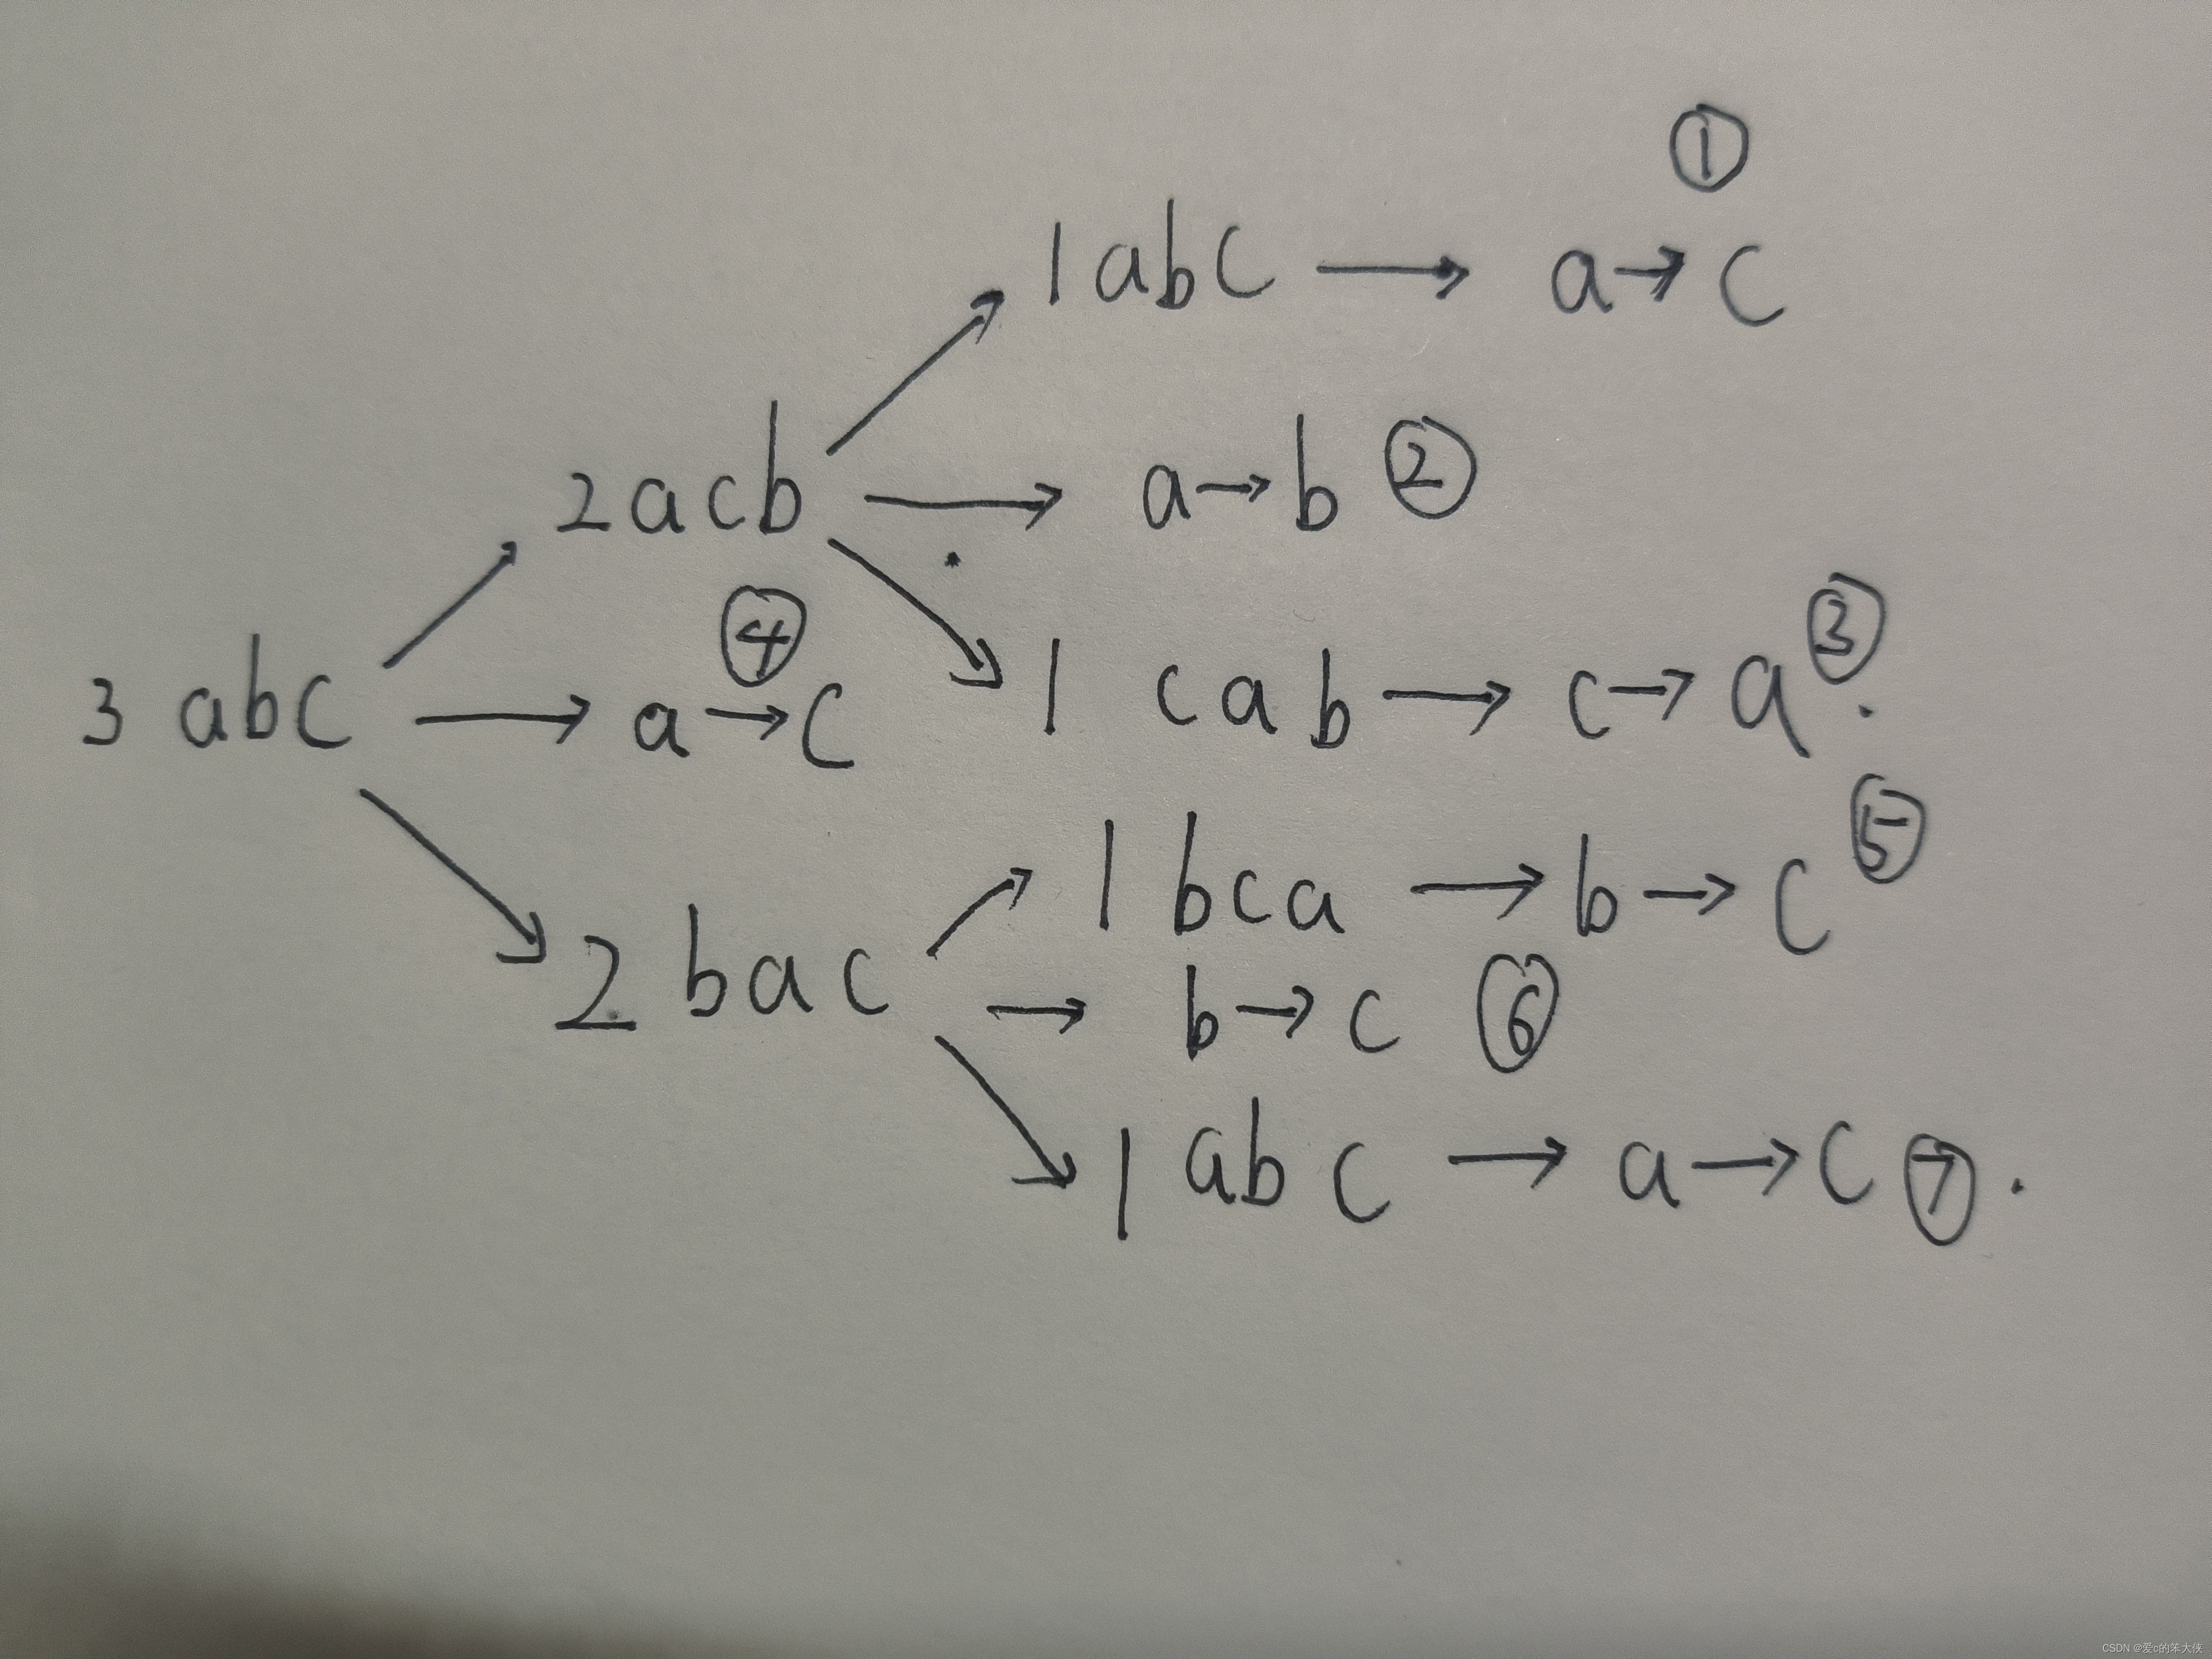 ①
1 abc → a→c
2acb → a→b ②
1 cab → c→a ③.
④
3 abc → a→c
1 bca → b→c ⑤
2 bac → b→c ⑥
1 abc → a→c ⑦.
CSDN @爱c的笨大侠